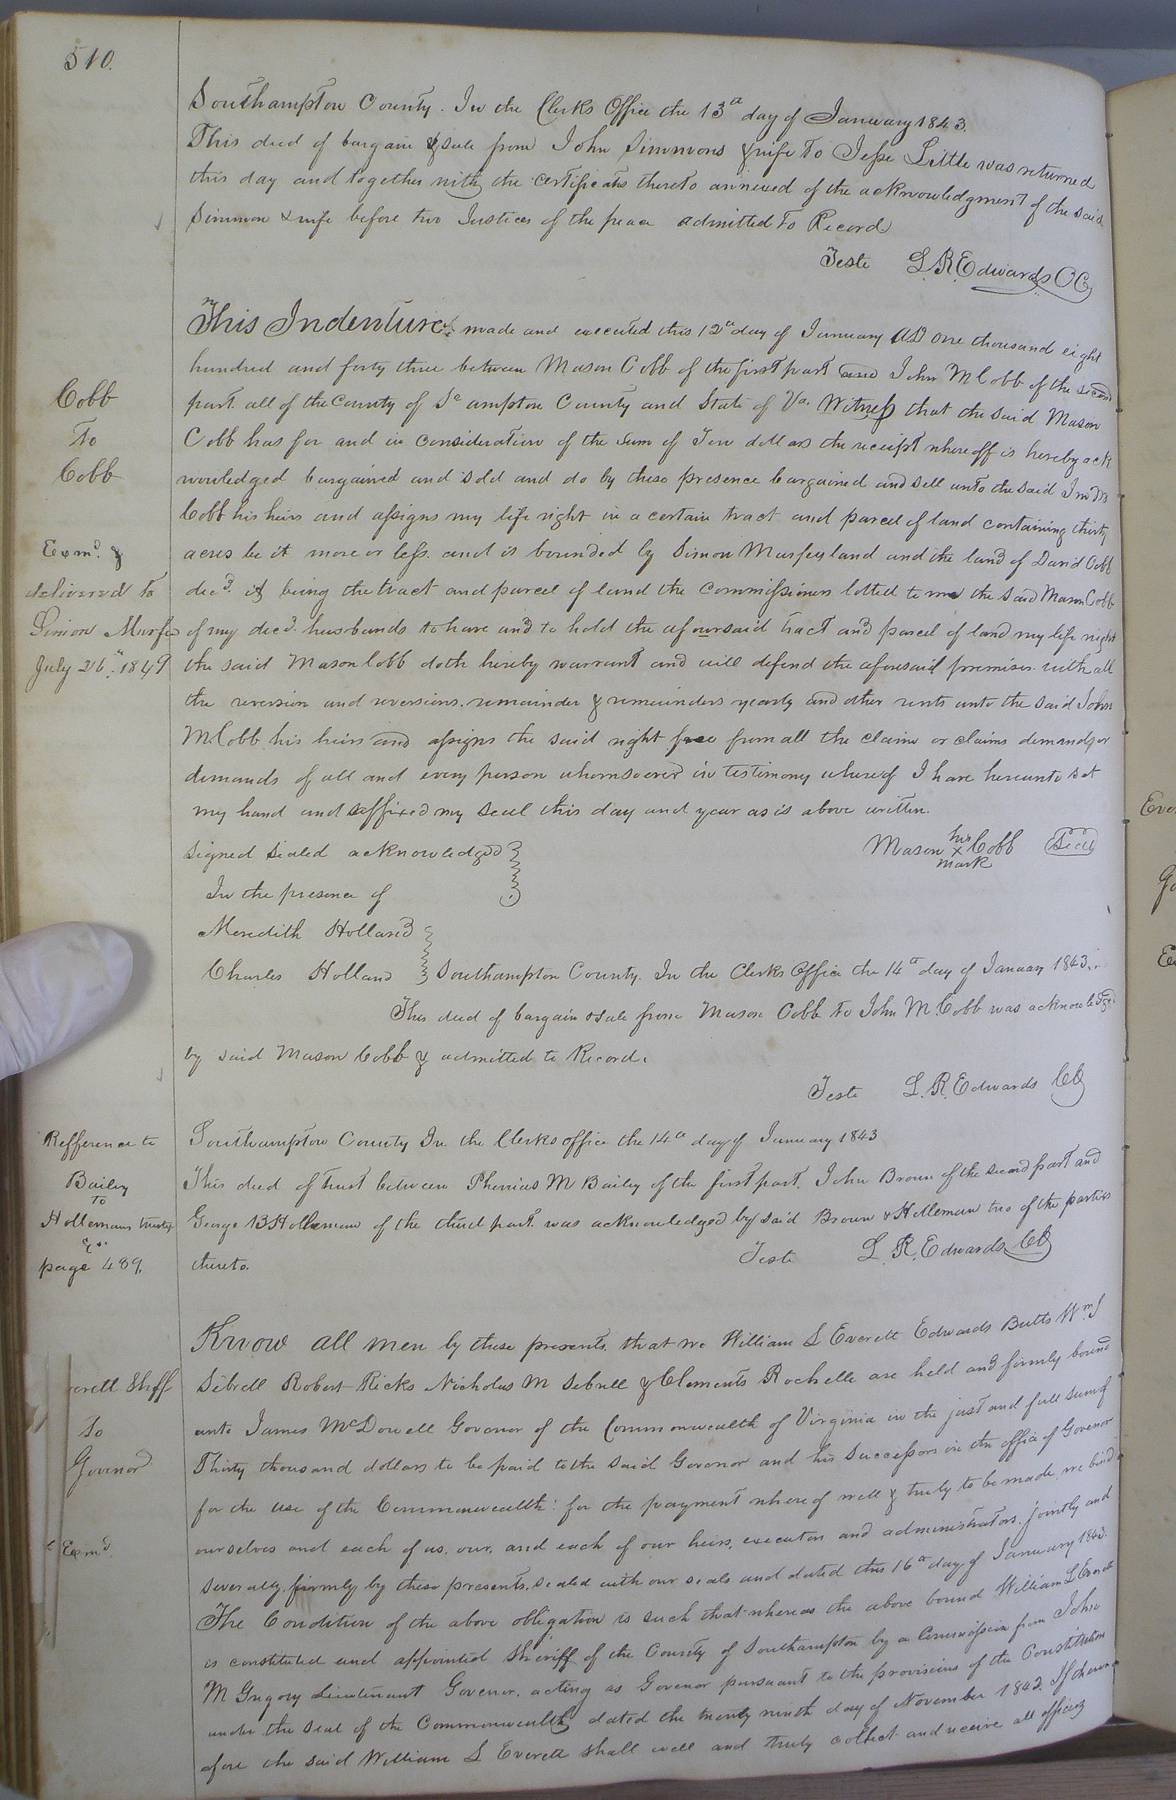 510.
Southampton County. In the Clerks Office the 13th day of January 1843.
This deed of bargain & sale from John Simmons & wife To Jesse Little was returned
this day and together with the certificate thereto annexed of the acknowledgment of the said
Simmon & wife before two Justices of the peace admitted to Record
Teste L. R. Edwards CC
This Indenture made and executed this 12th day of January AD one thousand eight
hundred and forty three between Mason Cobb of the first part and John M Cobb of the second
Cobb
To
Cobb
part. all of the County of So ampton County and State of Va. Witness that the said Mason
Cobb has for and in consideration of the sum of Ten dollars the receipt whereoff is hereby ack
nowledged bargained and sold and do by these presence bargained and sell unto the said Jno M
Cobb his heirs and assigns my life right in a certain tract and parcel of land containing thirty
Exmd. &
delivered to
Simon Murfee
July 26th. 1849
acres be it more or less. and is bounded by Simon Murfey land and the land of David Cobb
decd. it being the tract and parcel of land the commissioners lotted to me the said Mason Cobb
of my decd. husbands to have and to hold the afoursaid tract and parcel of land my life right
the said Mason Cobb doth hereby warrant and will defend the aforesaid premises with all
the reversion and reversions. remainder & remainders yearly and other rents unto the said John
M Cobb his heirs and assigns the said right free from all the claim or claims demand or
demands of all and every person whomsoever in testimony whereof I have hereunto set
my hand and affixed my seal this day and year as is above written.
Mason his x mark Cobb Seal
Signed sealed acknowledged
In the presence of
Meredith Holland
Charles Holland
Southampton County. In the Clerks Office the 14th day of January 1843.
This deed of bargain & sale from Mason Cobb to John M. Cobb was acknowledged
by said Mason Cobb & admitted to Record.
Teste L. R. Edwards CC
Refference to
Bailey
To
Hollemans trustee
&c.
page 489.
Southampton County In the Clerks office the 14th day of January 1843
This deed of trust between M Bailey of the first part. John Brown of the second part and
George B Holleman of the third part. was acknowledged by said Brown & Holleman two of the parties
thereto.
Teste L. R. Edwards CC
Know all men by these presents. that we William L Everett Edwards Butts Wm J
verett Shff
To
Govenor
Exmd.
Sebrell Robert Ricks Nicholas M Sebrell & Clements Rochelle are held and firmly bound
unto James McDowell Govenor of the Commonwealth of Virginia in the just and full sum of
Thirty thousand dollars to be paid to the said Govenor and his Successors in the office of Govenor
for the use of the Commonwealth: for the payment whereof well & truly to be made. we bind
ourselves and each of us, our, and each of our heirs, executors and administrators. jointly and
severally, firmly by these presents. sealed with our seals and dated this 16th day of January 1843.
The Condition of the above obligation is such that whereas the above bound William L Everett
is constituted and appointed Sheriff of the County of Southampton by a Commission from John
M Gregory Lieutenant Govenor. acting as Govenor pursuant to the provisions of the Constitution
under the Seal of the Commonwealth dated the twenty ninth day of November 1842. If there
fore the said William L Everett shall well and truly collect and receive all officers